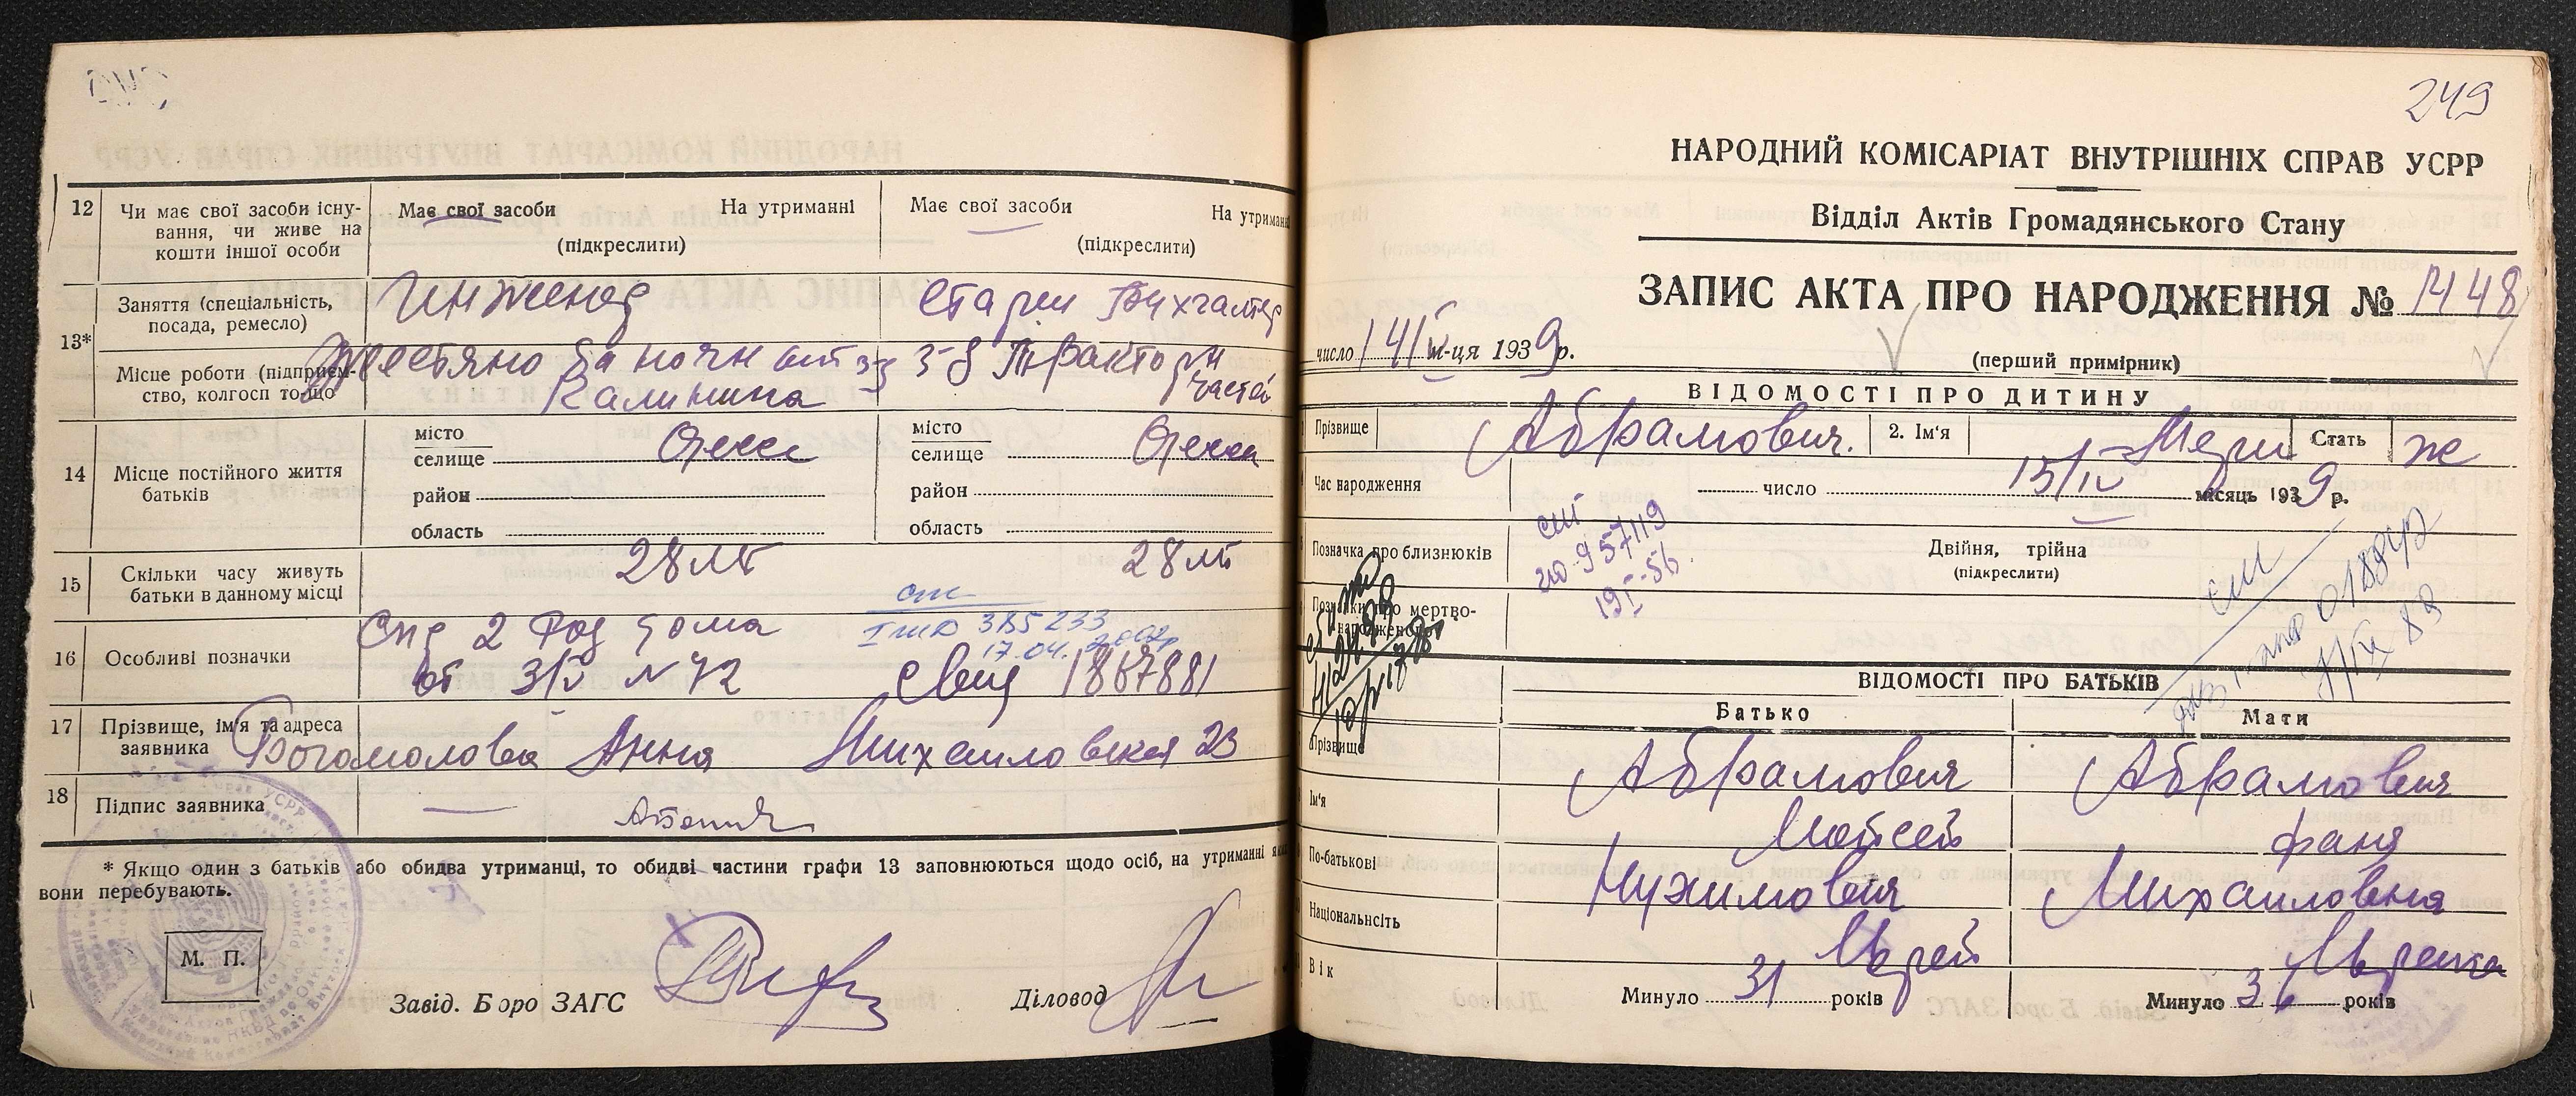 12 Чи має свої засоби існу-
вання, чи живе на
кошти іншої особи
Має свої засоби На утриманні
(підкреслити)
Має свої засоби На утриманні
(підкреслити)
13* Заняття (спеціальність,
посада, ремесло)
Инженер
Бухгалтер
Місце роботи (підприєм-
ство, колгосп тощо
Калинина
14 Місце постійного життя
батьків
місто
селище Одесса
район
область
місто
селище Одесса
район
область
15 Скільки часу живуть
батьки в данному місці
28 лт
28 лт
16 Особливі позначки
Спр 2 Род дома
от 3/V N 72
385233
17.04.2002р
Свид 1867881
17 Прізвище, ім'я та адреса
заявника
Богомолова Анна Михаиловская 23
18 Підпис заявника
* Якщо один з батьків або обидва утриманці, то обидві частини графи 13 заповнюються щодо осіб, на утриманні яких
вони перебувають.
М. П.
Завід. Бюро ЗАГС
Діловод
249
НАРОДНИЙ КОМІСАРІАТ ВНУТРІШНІХ СПРАВ УСРР
Відділ Актів Громадянського Стану
ЗАПИС АКТА ПРО НАРОДЖЕННЯ № 1448
число м-ця 1939р.
(перший примірник)
ВІДОМОСТІ ПРО ДИТИНУ
Прізвище Абрамович. 2. Ім'я Мери Стать ж
Час народження число 15/IV місяць 1939 р.
Позначка про близнюків
Двійня, трійна
(підкреслити)
957119
19/I-56.
Позначки про мертво-
народженого
ВІДОМОСТІ ПРО БАТЬКІВ
Батько Мати
Прізвище Абрамович Абрамович
Ім'я Мойсей Фаня
По-батькові Нухимович Михаиловна
Національнсіть Иврей Иврейка
Вік Минуло 31 років Минуло років